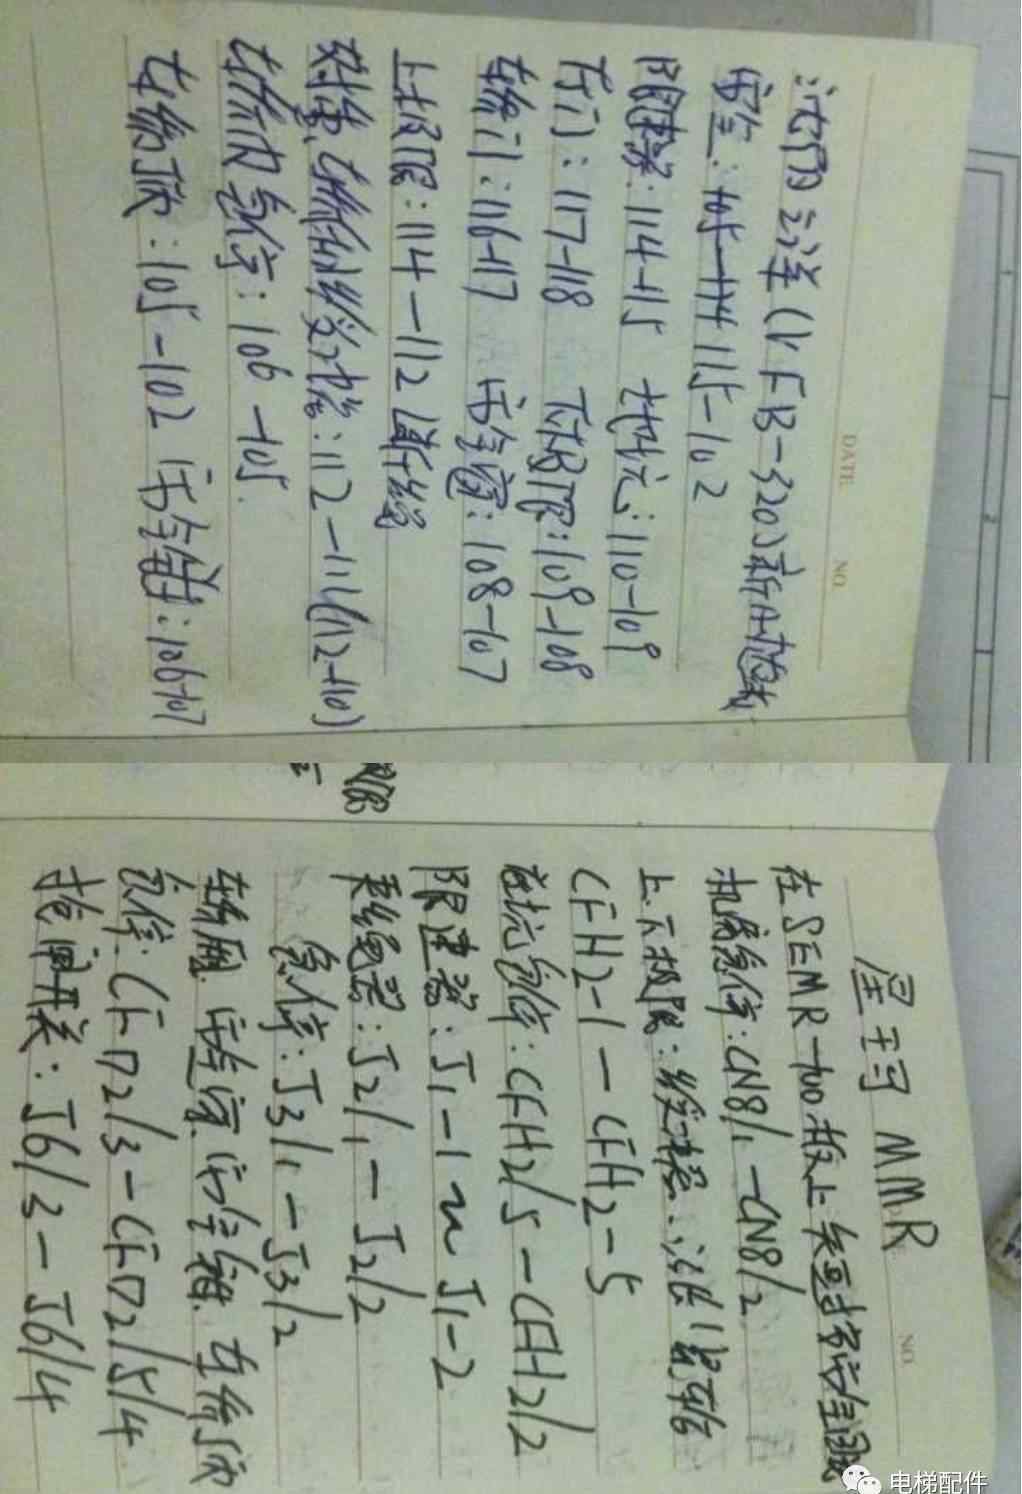 DATE.
NO.
沈阳三洋(VFB-320)新
安全:105-114 115-102
限速器:114-115 地坑:110-109
厅门:117-118 下极限:109-108
轿门:116-117 安全窗:108-107
上极限:114-112 断绳
缓冲器:112-111(112-110)
轿内急停:106-105.
轿顶:105-102 安全钳:106-107
星玛 MMR
NO.
在SEMR-100板上 安全回路
机房急停:CN8/1-CN8/2
上下极限:缓冲器:涨紧轮
CFH2-1-CFH2-5
底坑急停:CFH2/5-CFH2/2
限速器:J1-1~J1-2
夹绳器:J2/1-J2/2
急停:J3/1-J3/2
轿厢 安全窗 安全钳 轿顶
急停:CFD2/3-CFD2/5/4
抱闸开关:J6/3-J6/4
电梯配件